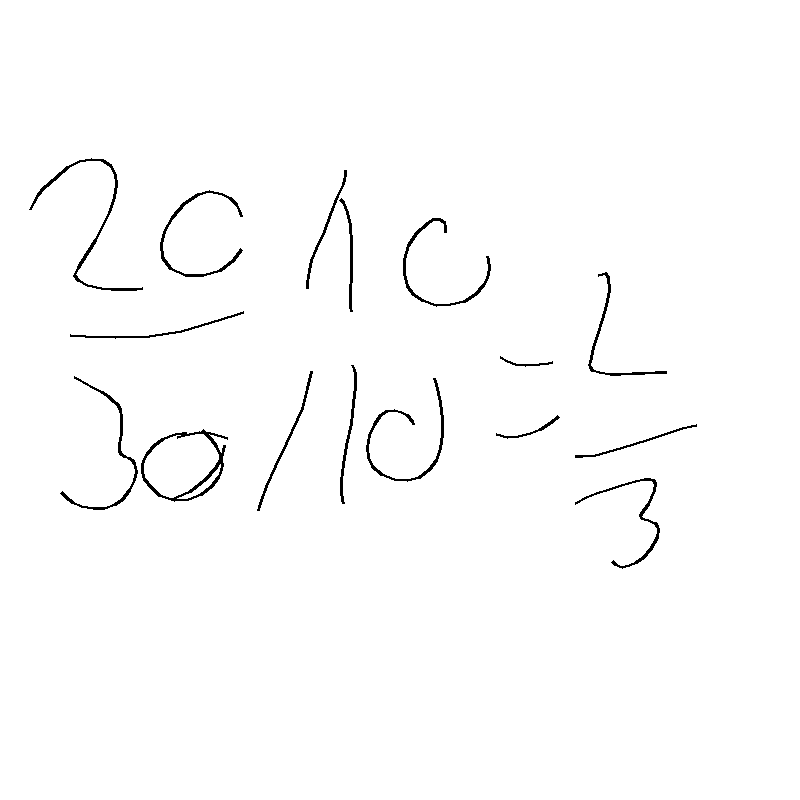 20/10
30/10 = 2/3